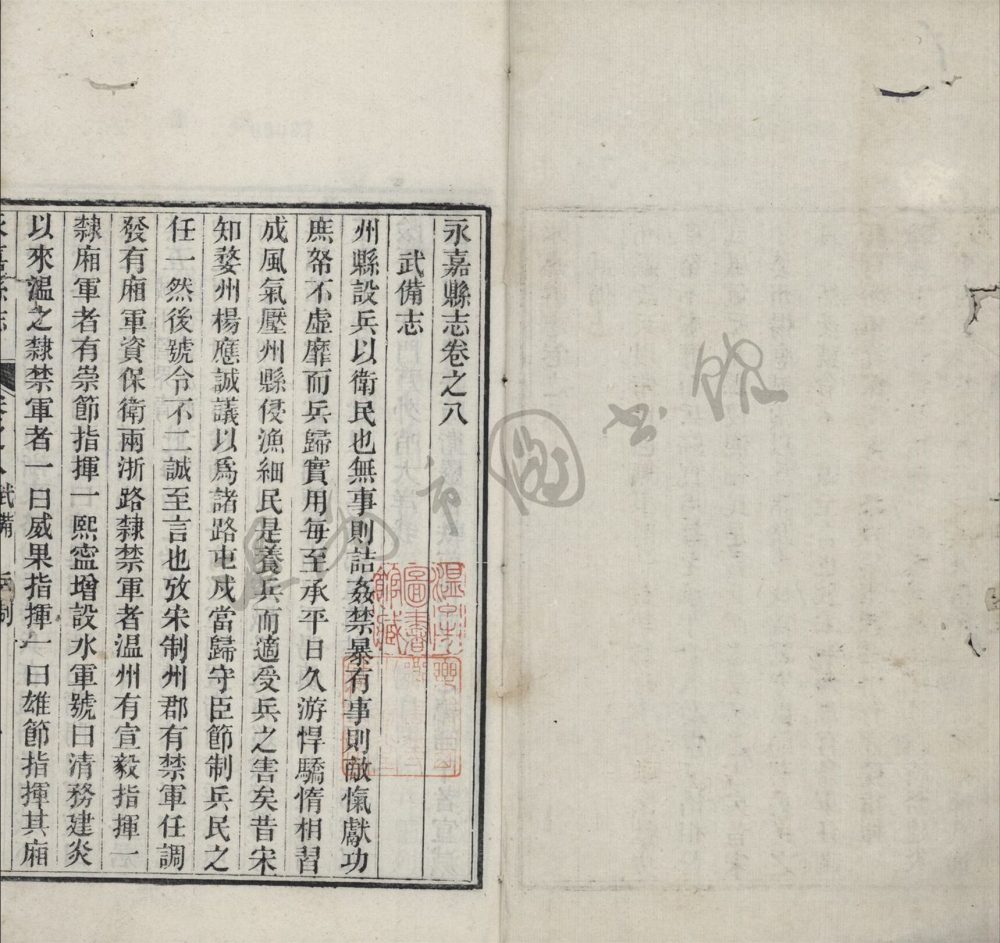 永嘉縣志卷之八
武備志
州縣設兵以衛民也無事則詰姦禁暴有事則敵愾獻功
庶帑不虛靡而兵歸實用每至承平日久游悍驕惰相習
成風氣壓州縣侵漁細民是養兵而適受兵之害矣昔宋
知婺州楊應誠議以爲諸路屯戍當歸守臣節制兵民之
任一然後號令不二誠至言也攷宋制州郡有禁軍任調
發有廂軍資保衛兩浙路隸禁軍者温州有宣毅指揮一
隸廂軍者有崇節指揮一熙寧增設水軍號曰清務建炎
以來溫之隸禁軍者一曰威果指揮一曰雄節指揮其廂
永嘉縣志
卷之八武備
兵制
溫州市
圖書館
館藏